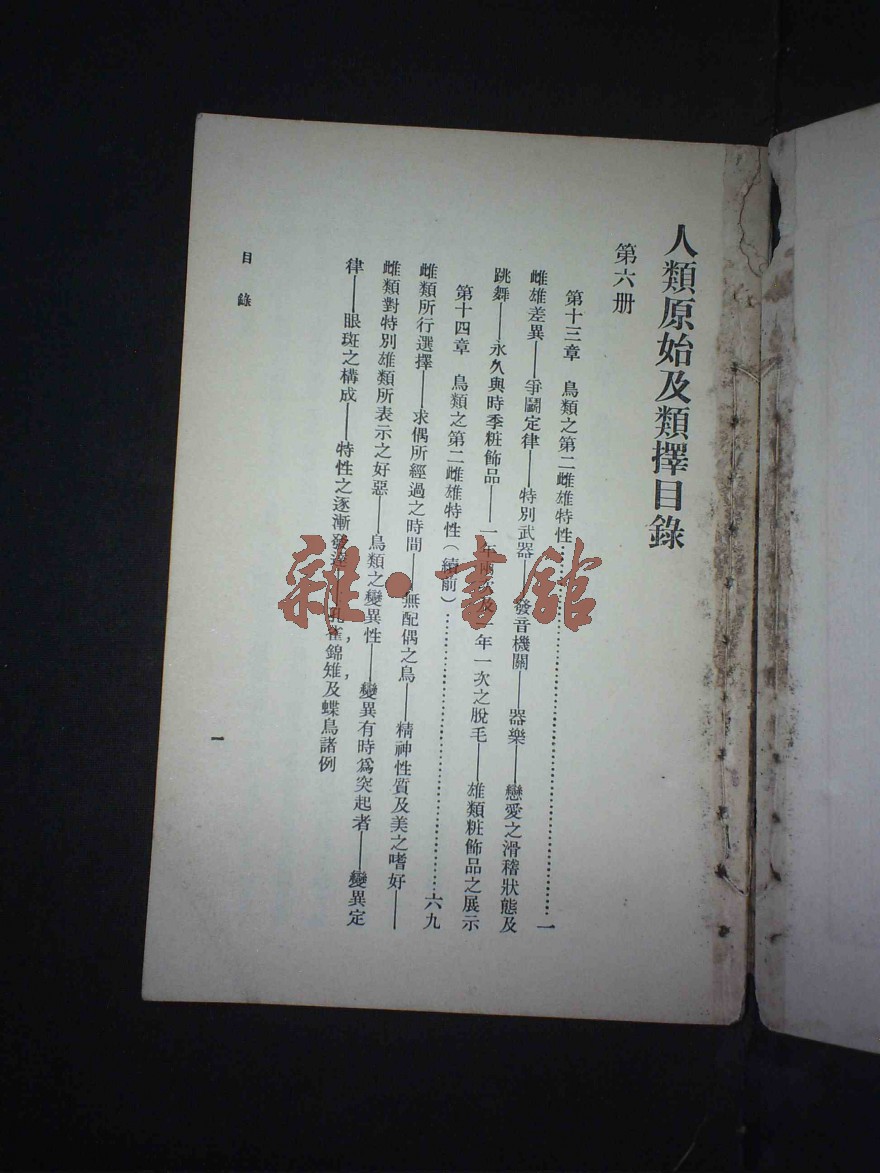 人類原始及類擇目錄
第六册
第十三章　鳥類之第二雌雄特性……一
雌雄差異——爭鬭定律——特別武器——發音機關——器樂——戀愛之滑稽狀態及
跳舞——永久與時季粧飾品——一年兩次及一年一次之脫毛——雄類粧飾品之展示
第十四章　鳥類之第二雌雄特性(續前)……六九
雌類所行選擇——求偶所經過之時間——無配偶之鳥——精神性質及美之嗜好——
雌類對特別雄類所表示之好惡——鳥類之變異性——變異有時爲突起者——變異定
律——眼斑之構成——特性之逐漸發達——孔雀,錦雉,及蝶鳥諸例
目錄
一
雜·書館